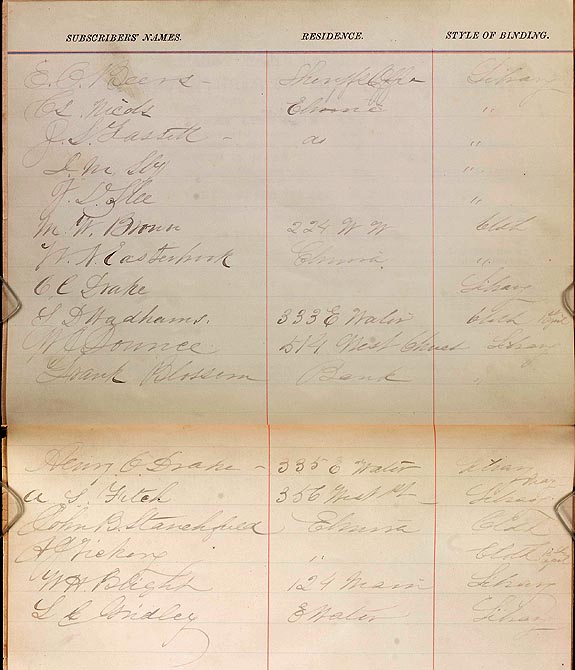 SUBSCRIBERS' NAMES. RESIDENCE. STYLE OF BINDING.
E. C. Beers - Sheriffs Office Library
Nicols Elmira "
J. S. Fassett - do "
D. M. "
J. D. Slee "
M. W. Brown 224 W W Cloth
W. N Easterbrook Elmira "
C C Drake Library
S D Wadhams. 333 E Water Cloth
519 West Church Library
Frank Blossom Bank "
Henry C Drake - 335 E Water Library
A S Fitch 356 West Library
John B. Stanchfield Elmira Cloth
" Cloth
W H Blight 124 Main Library
Gridley E Water Library